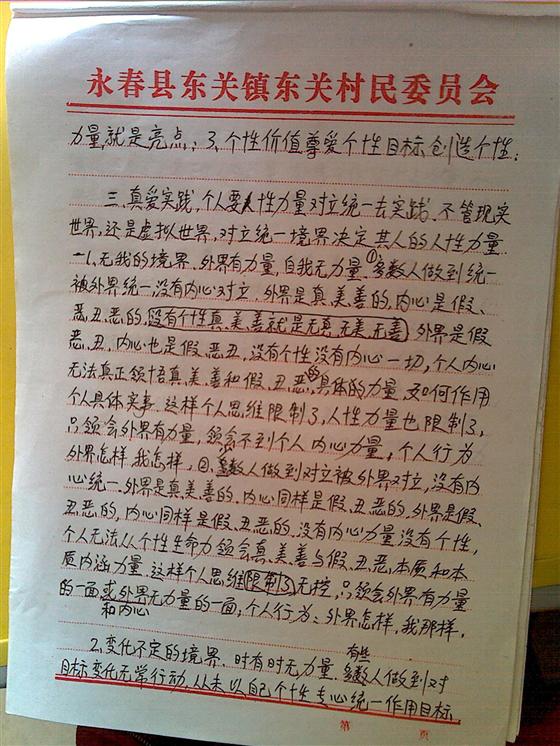 永春县东关镇东关村民委员会
力量,就是亮点;3、个性价值尊爱个性目标,创造个性;
三、真爱实践,个人要人性力量对立统一去实践,不管现实
世界,还是虚拟世界,对立统一境界决定其人的人性力量
一1、无我的境界,外界有力量,自我无力量,①多数人做到统一
被外界统一,没有内心对立,外界是真、美善的,内心是假、
恶、丑、恶的,没有个性真、美、善就是无真、无美、无善,外界是假
恶、丑,内心也是假、恶丑,没有个性没有内心一切,个人内心
无法真正领悟真、美、善和假、丑、恶的具体的力量,又如何作用
个人具体实事,这样个人思维限制了,人性力量也限制了,
只领会外界有力量,领会不到个人内心力量,个人行为
外界怎样,我怎样,②、少数人做到对立被外界对立,没有内
心统一,外界是真、美、善的,内心同样是假、丑、恶的,外界是假、
丑、恶的,内心同样是假、丑、恶的,没有内心力量没有个性,
个人无法从个性生命力领会真、美、善与假、丑、恶,本质和本
质内涵力量,这样个人思维限制了,无控,只领会外界有力量
的一面,或外界和内心无力量的一面,个人行为:外界怎样,我那样,
2、变化不定的境界,时有时无力量,有些多数人做到对
目标变化无常行动,从未以自己个性专心统一作用目标,
第 页